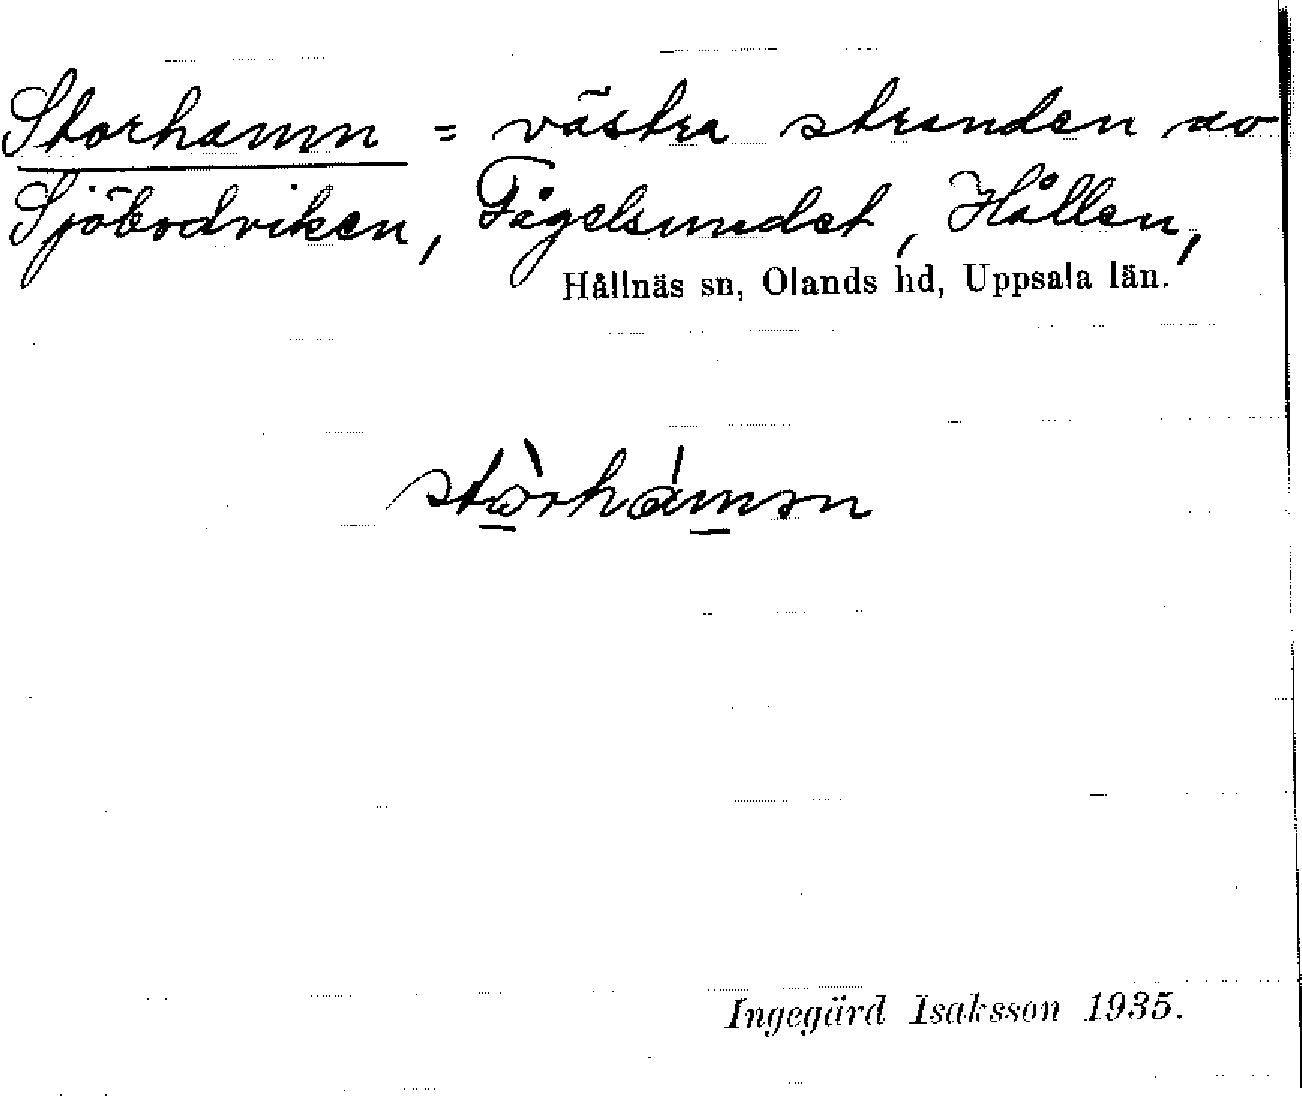 Storhamn = västra stranden av
Sjöbodviken, Fågelsundet, Hållen,
Hållnäs sn, Olands hd, Uppsala län.
stò̱rhám̱ən
Ingegärd Isaksson 1935.